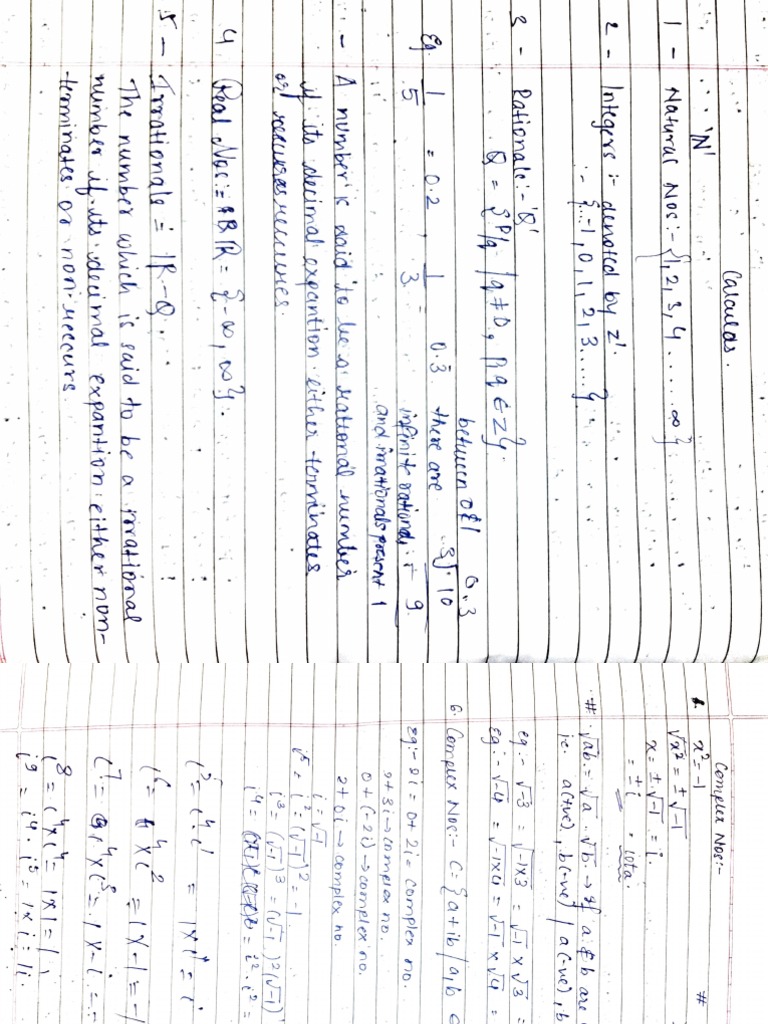 Calculas.
'N'
1 - Natural Nos:- {1, 2, 3, 4 ..... ∞}
2 - Integers :- denoted by 'Z'.
:- {-1, 0, 1, 2, 3 ....}
3 - Rationals:- 'Q'
Q = {P/q | q ≠ 0, p, q ∈ Z}.
Eg. 1/5 = 0.2 , 1/3 = 0.3
between 0 & 1
there are
infinite rationals
and irrationals present
0.3
3√10
- 9
1
- A number is said to be a rational number
if its decimal expantion either terminates
or recurres.
4 Real Nos:= R = {-∞, ∞}.
5 - Irrationals = R - Q.
The number which is said to be a irrational
number if its decimal expantion either non-
terminates or non-reccurs.
Complex Nos:-
#
1. x² = -1
√x² = ± √-1
x = ± √-1 = i.
= ± i , iota.
# √ab = √a . √b → if a & b are
ie. a(+ve), b(-ve) / a(-ve), b
eg:- √-3 = √-1x3 = √-1 x √3 =
eg:- √-4 = √-1x4 = √-1 x √4 =
6. Complex Nos:- C = {a + ib / a, b ∈
eg:- 2i = 0 + 2i = complex no.
2 + 3i → complex no.
0 + (-2i) → complex no.
2 + 0i → complex no.
i = √-1
i² = (√-1)² = -1
i³ = (√-1)³ = (√-1)²(√-1)
i⁴ = i² . i² =
i⁵ = i⁴ i¹ = 1 x i¹ = i
i⁶ = i⁴ x i² = 1 x -1 = -1
i⁷ = i⁴ x i³ = 1 x -i = -
i⁸ = i⁴ x i⁴ = 1 x 1 = 1
i⁹ = i⁴ . i⁵ = 1 x i = 1i.